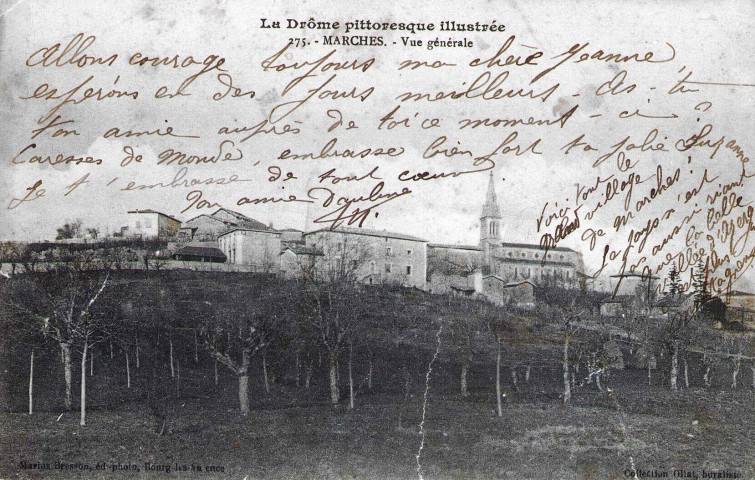 La Drôme pittoresque illustrée
275. - MARCHES. - Vue générale
Allons courage toujours ma chère Jeanne
espérons en des jours meilleurs - As-tu
ton amie auprès de toi ce moment-ci ?
Caresses de Monde, embrasse bien fort ta jolie Suzanne
Je t'embrasse de tout cœur
Ton amie Pauline
Voici tout le
grand village
de Marches !
Le pays n'est
pas aussi riant
que la belle
Marius Bresson, éd. photo, Bourg-les-Valence
Collection Ollat, buraliste